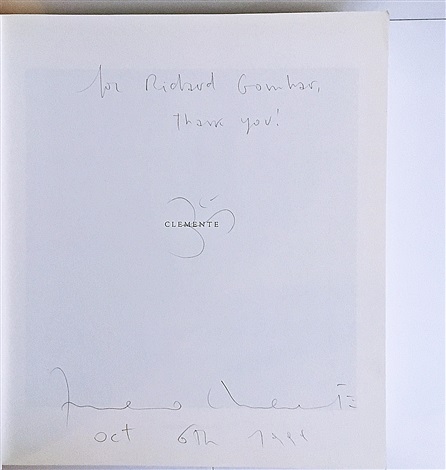 for Richard
Thank you!
ॐ
CLEMENTE
Francesco Clemente
Oct 6th 1999